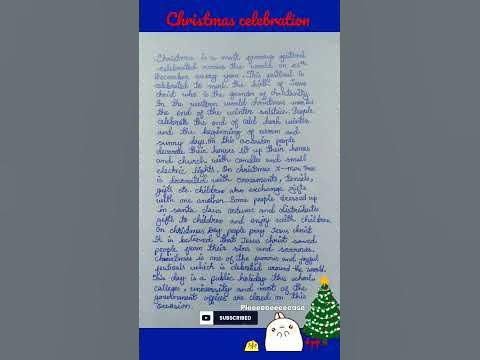 Christmas celebration
Christmas is a most famous festival
celebrated across the world on 25th
December every year. This festival is
celebrated to mark the birth of Jesus
christ who is the founder of christianity
In the western world christmas marks
the end of the winter solstice. People
celebrate the end of cold dark winter
and the beginning of warm and
sunny days. On this occasion people
decorate their houses lit up their homes
and church with candles and small
electric lights. On christmas X-mas Tree
is decorated with ornaments, tinsels,
gifts etc. children also exchange gifts
with one another. Some people dressed up
in santa claus costume and distribute
gifts to children and enjoy with children
On christmas Day people pray Jesus christ
It is believed that Jesus christ saved
people from their sins and
Christmas is one of the famous and joyful
festivals which is clebrated around the world.
This day is a public holiday this school,
colleges, university and most of the
government offices are closed on this
occasion.
Pleeeeeeeeeease
SUBSCRIBED